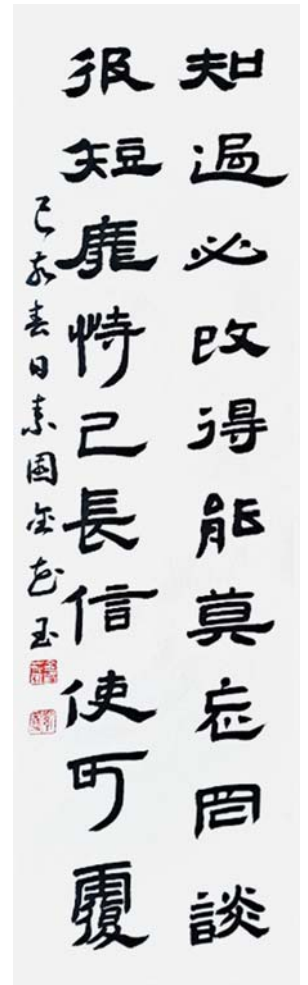 知過必改得能莫忘罔談
彼短靡恃己長信使可覆
己亥春日素園